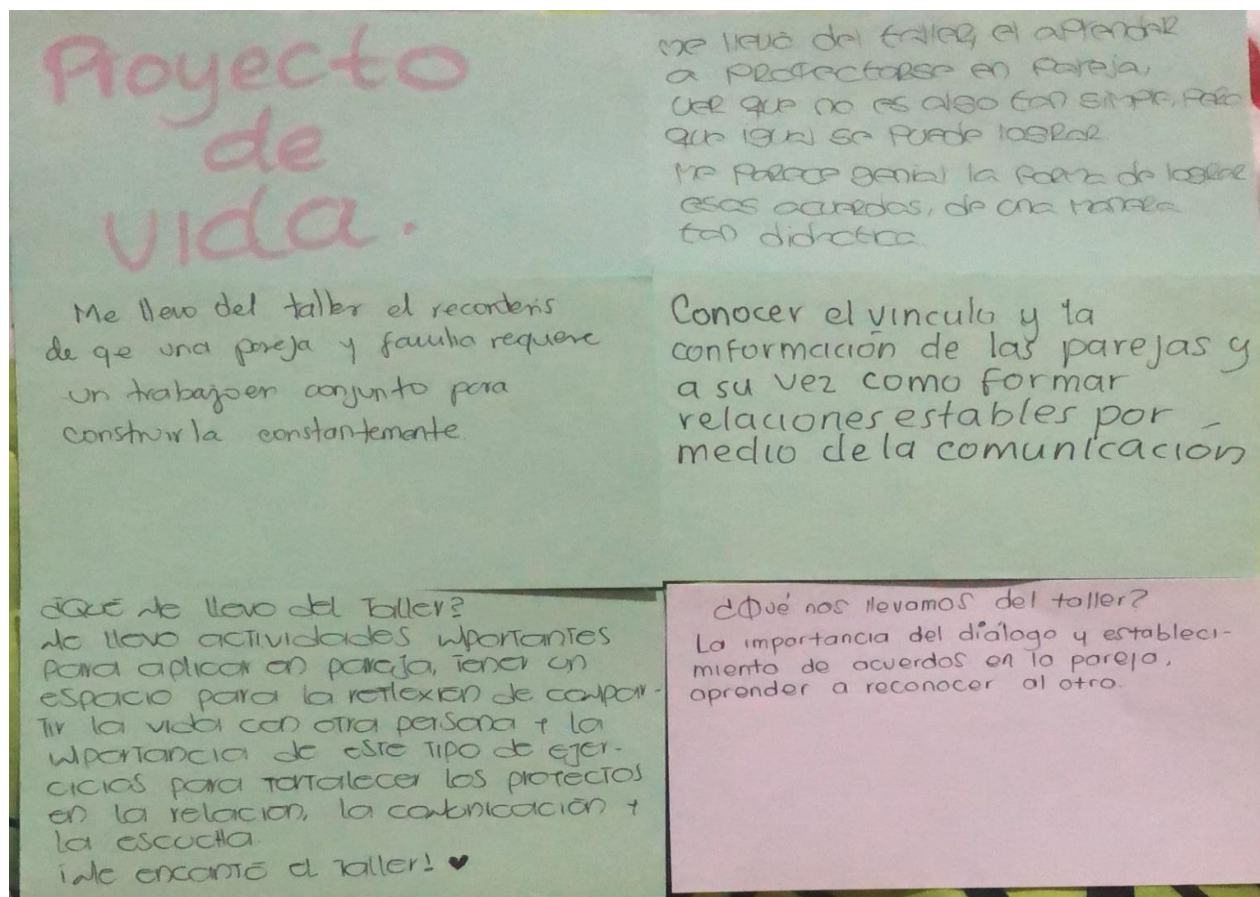 Proyecto
de
vida.
me llevo del taller, el aprender
a proyectarse en pareja,
ver que no es algo tan simple, pero
que igual se puede lograr.
Me parece genial la forma de lograr
esos acuerdos, de una manera
tan didactica.
Me llevo del taller el recorderis
de qe una pareja y familia requiere
un trabajo en conjunto para
construirla constantemente.
Conocer el vinculo y la
conformación de las parejas y
a su vez como formar
relaciones estables por
medio de la comunicación
¿Qué me llevo del Taller?
Me llevo actividades importantes
para aplicar en pareja, Tener un
espacio para la reflexión de compar-
tir la vida con otra persona y la
importancia de este tipo de ejer-
cicios para fortalecer los proyectos
en la relación, la comunicación y
la escucha.
¡Me encantó el Taller! ♥
¿Qué nos llevamos del taller?
La importancia del diálogo y estableci-
miento de acuerdos en la pareja,
aprender a reconocer al otro.